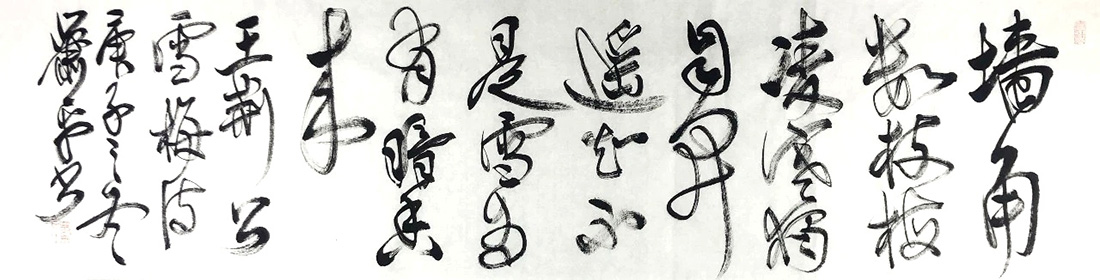 墙角
数枝梅
凌寒獨
自開
遥知不
是雪为
有暗香
来
王荆公
雪梅诗
庚子之冬
平书